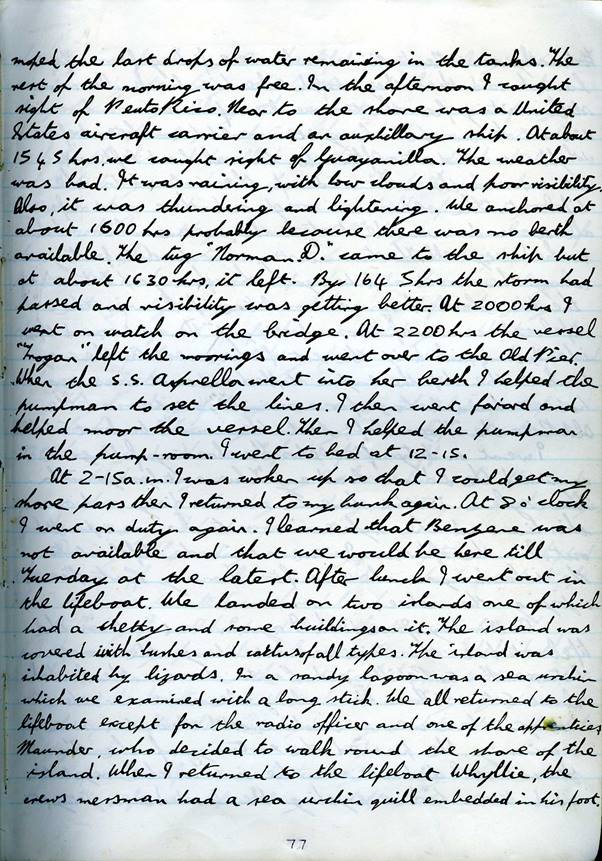 moped the last drops of water remaining in the tanks. The
rest of the morning was free. In the afternoon I caught
sight of PeutoRico. Near to the shore was a United
States aircraft carrier and an auxhillary ship. At about
1545 hrs. we caught sight of Guayanilla. The weather
was bad. It was raining, with low clouds and poor visibility.
Also, it was thundering and lightening. We anchored at
about 1600 hrs probably because there was no berth
available. The tug "Norman. D." came to the ship but
at about 1630 hrs, it left. By 1645 hrs the storm had
passed and visibility was getting better. At 2000 hrs I
went on watch on the bridge. At 2200 hrs the vessel
"Trogan" left the moorings and went over to the Old Pier.
When the S.S. Asprella went into her berth I helped the
pumpman to set the lines. I then went for'ard and
helped moor the vessel. Then I helped the pumpman
in the pump-room. I went to bed at 12-15.
At 2-15a.m. I was woken up so that I could get my
shore pass then I returned to my bunk again. At 8 o'clock
I went on duty again. I learned that Benzene was
not available and that we would be here till
Tuesday at the latest. After lunch I went out in
the lifeboat. We landed on two islands one of which
had a shetty and some buildings on it. The island was
covered with bushes and cactus of all types. The island was
inhabited by lizards. In a sandy lagoon was a sea urchin
which we examined with a long stick. We all returned to the
lifeboat except for the radio officer and one of the apprentices
Maunder, who decided to walk round the shore of the
island. When I returned to the lifeboat Whyllie, the
crews messman had a sea urchin quill embedded in his foot.
77